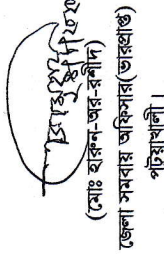 (মোঃ হারুন-অর-রশীদ)
জেলা সমবায় অফিসার(ভারপ্রাপ্ত)
পটুয়াখালী।